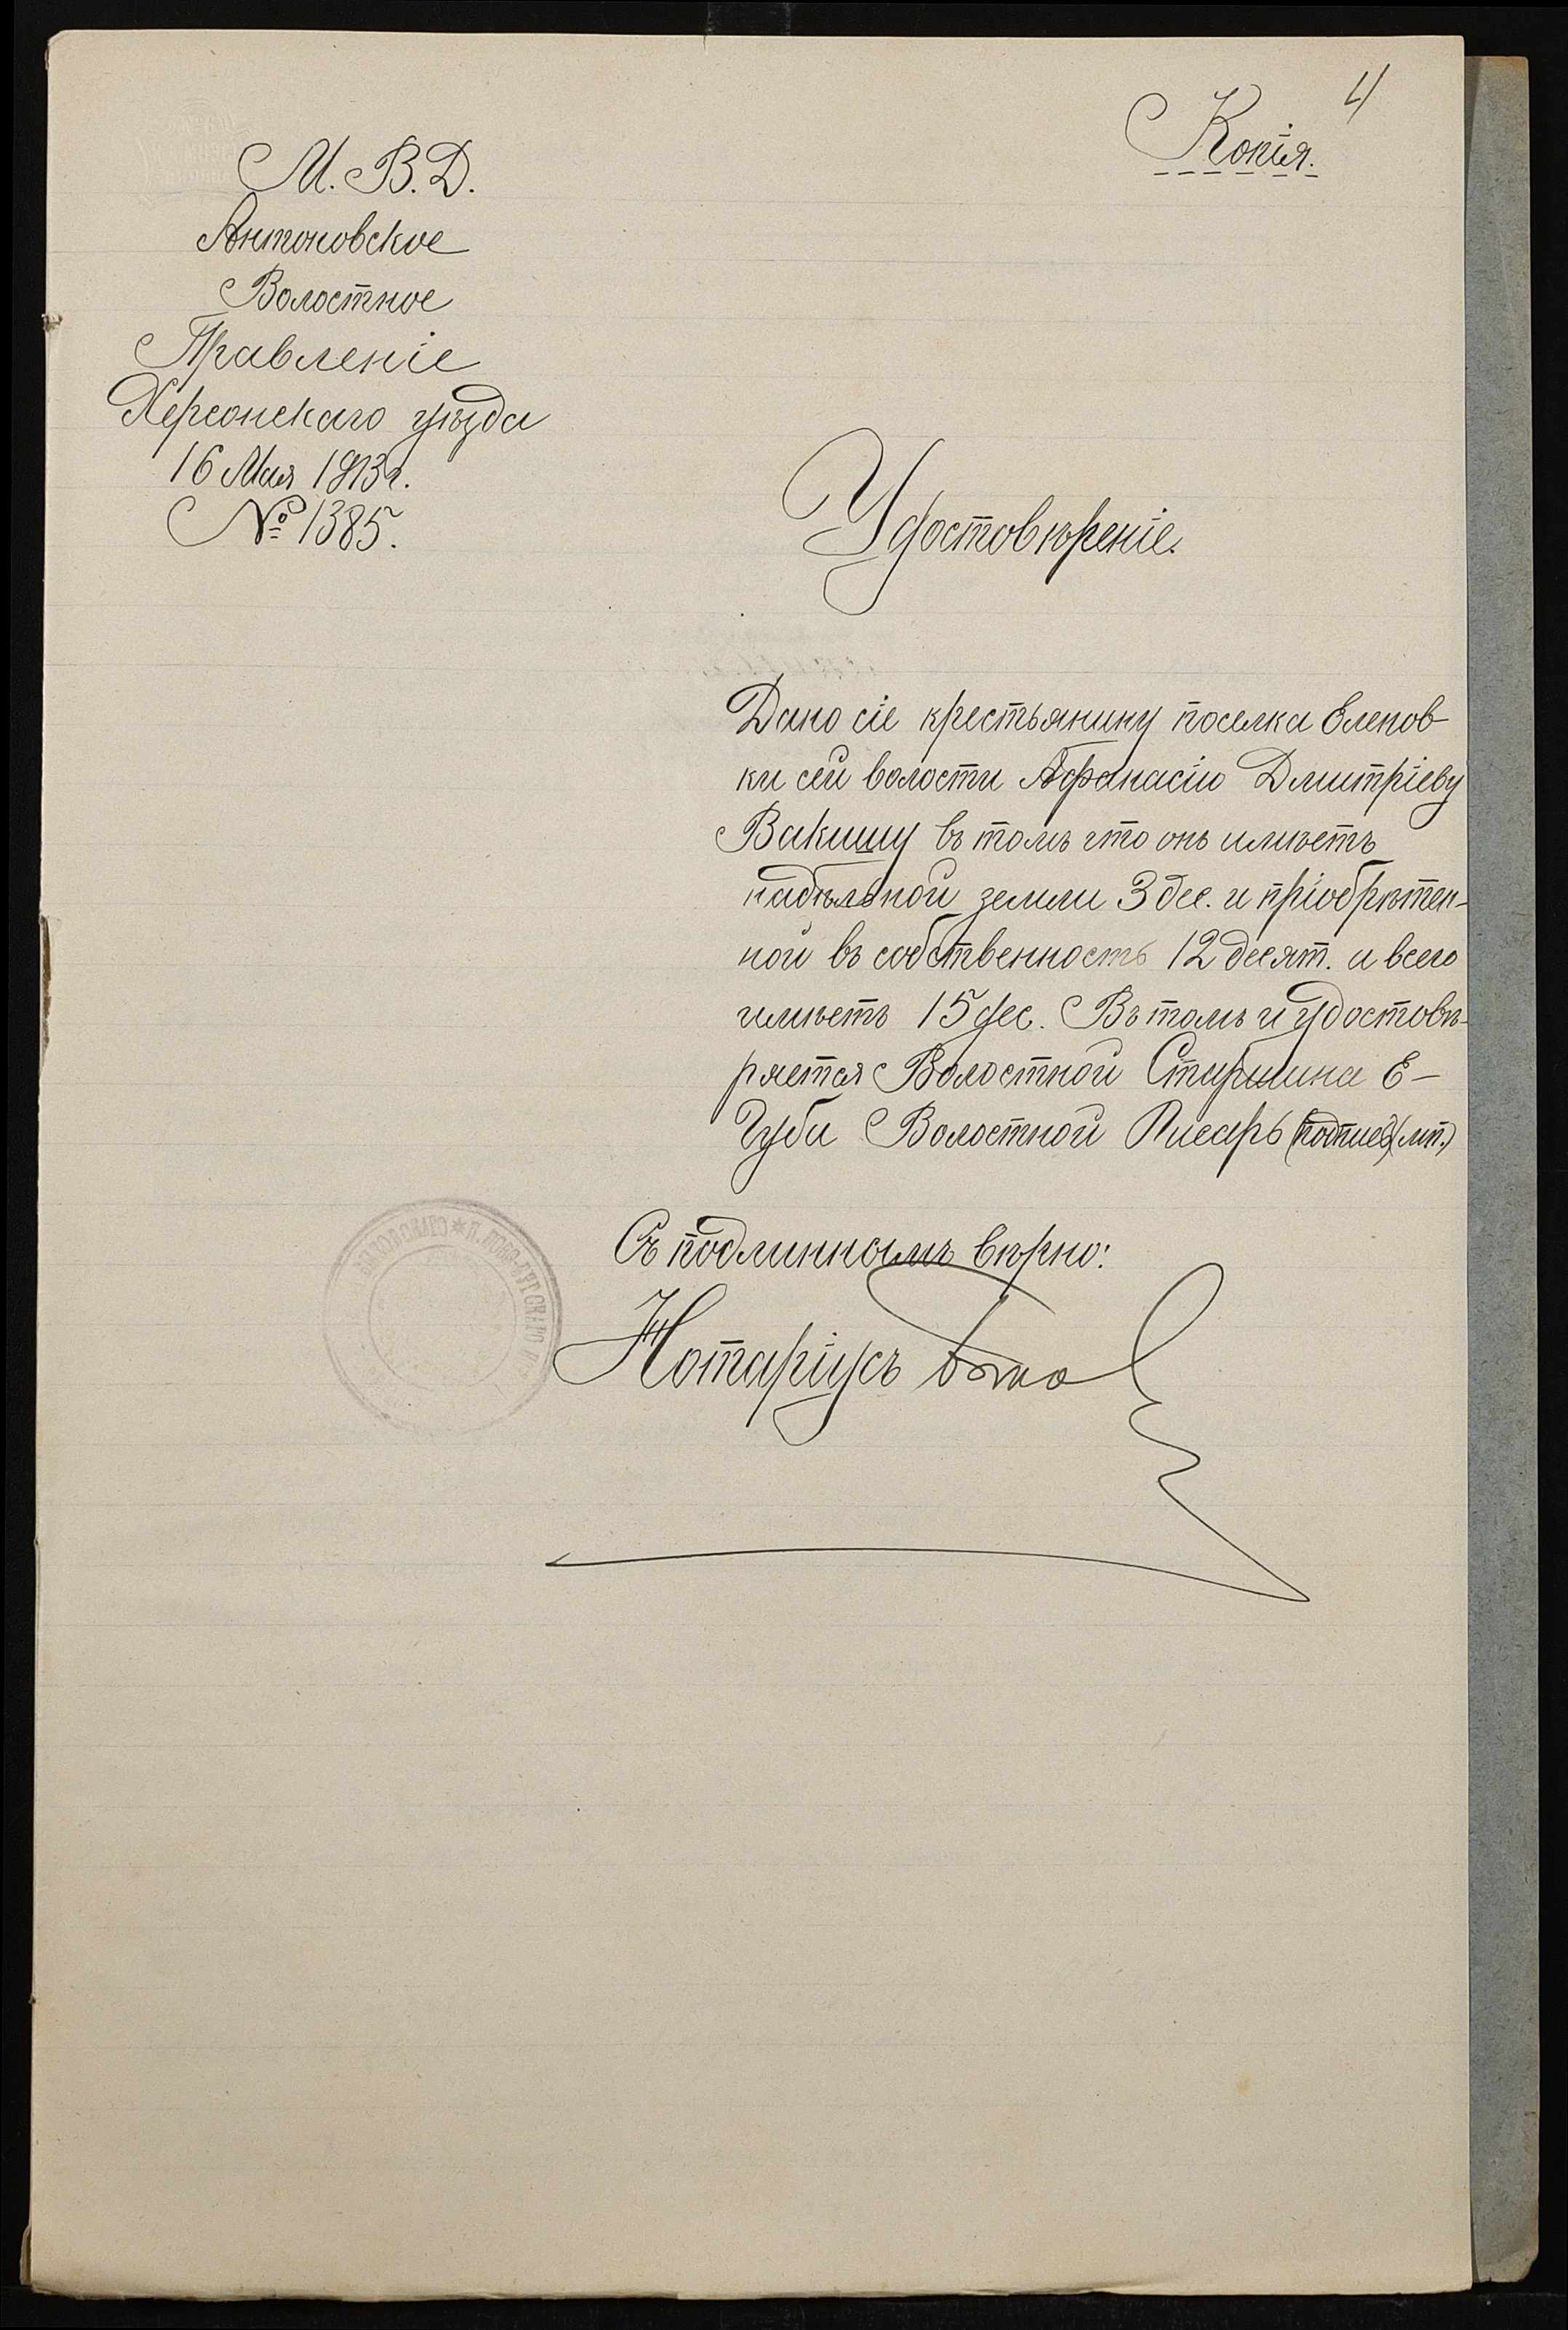 4
Копія.
М. В. Д.
Антоновское
Волостное
Правленіе
Херсонскаго уѣзда
16 Мая 1913 г.
№ 1385.
Удостовѣреніе.
Дано сіе крестьянину поселка Еленов-
ки сей волости Афанасію Дмитріеву
въ томъ что онъ имѣетъ
надѣльной земли 3 дес. и пріобрѣтен-
ной въ собственность 12 десят. и всего
имѣетъ 15 дес. Въ томъ и удостовѣ-
ряется Волостной Старшина Е-
Губа Волостной Писарь (подпись) (мп.)
Съ подлиннымъ вѣрно:
Нотаріусъ